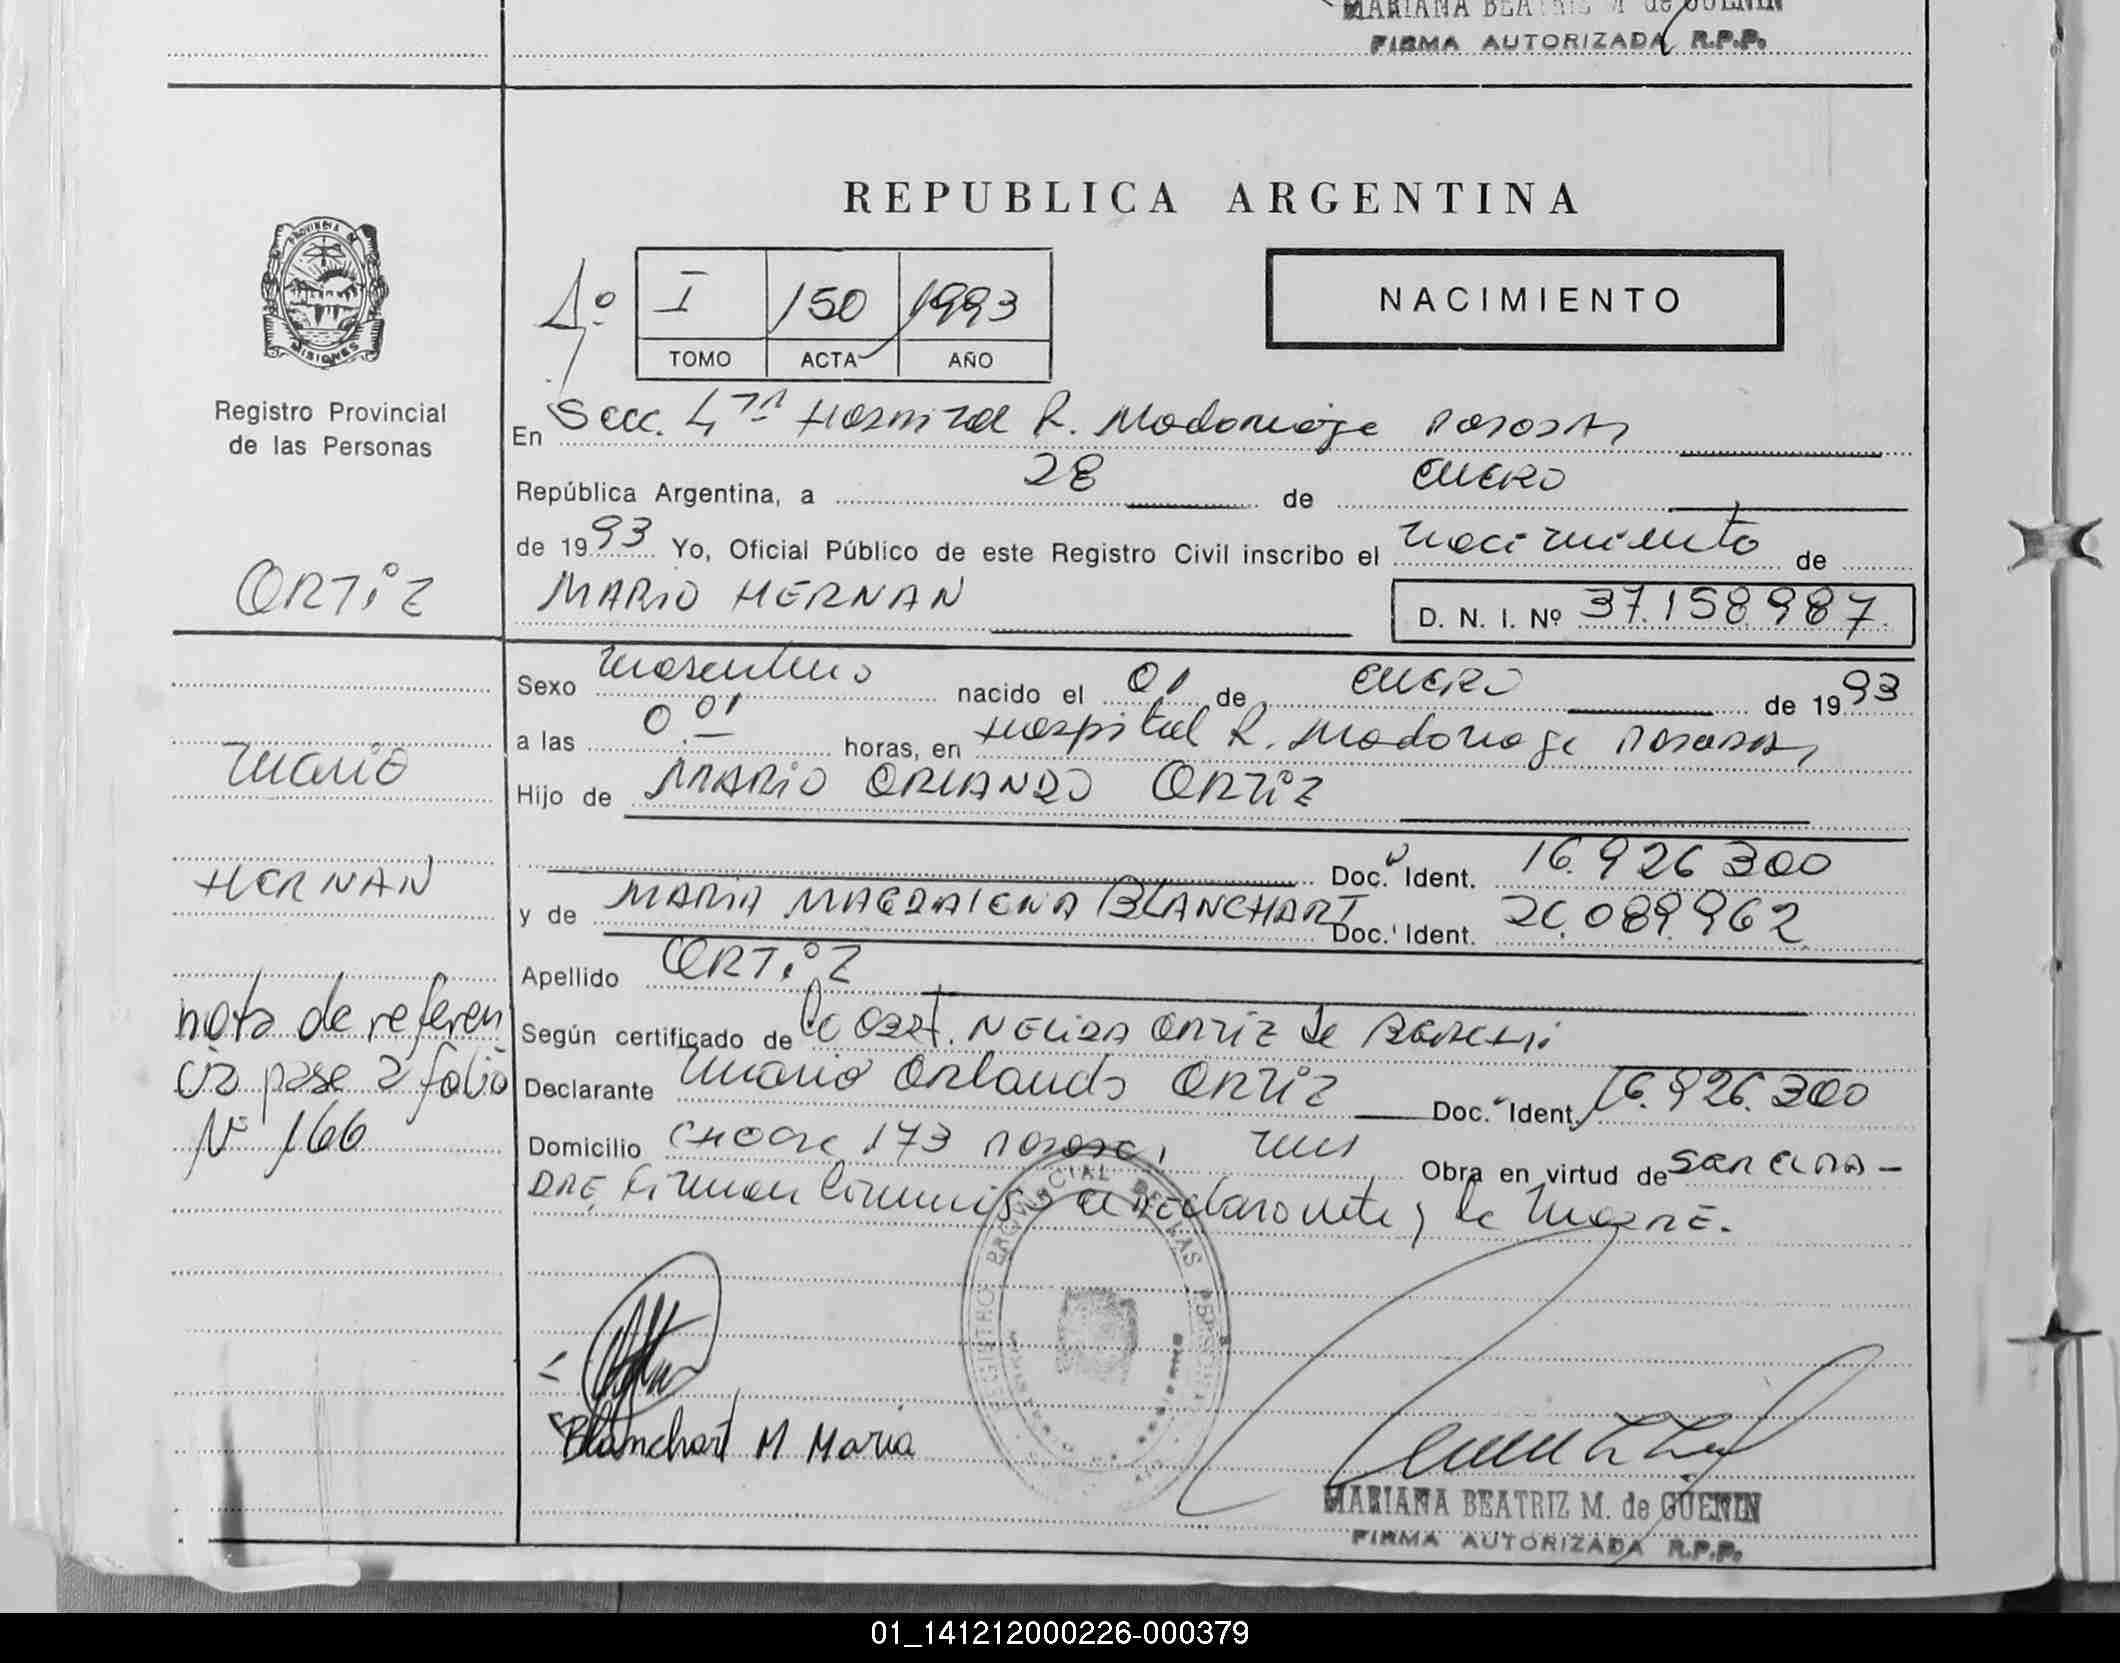 MARIANA BEATRIZ M de GUENIN
FIRMA AUTORIZADA R.P.P.
REPUBLICA ARGENTINA
PROVINCIA DE MISIONES
I 150 1993
TOMO ACTA AÑO
NACIMIENTO
Registro Provincial
de las Personas
En Secc. 4ta Hospital R. Madariaga Posadas
República Argentina, a 28 de enero
de 1993 Yo, Oficial Público de este Registro Civil inscribo el nacimiento de
ORTiZ
MARIO HERNAN
D. N. I. Nº 37.158.987
Sexo masculino nacido el 01 de enero de 1993
a las 0.01 horas, en Hospital R. Madariaga Posadas,
Mario
Hijo de MARIO ORLANDO ORTiZ
Doc. Ident. 16.926.300
HERNAN
y de MARIA MAGDALENA BLANCHART Doc. Ident. 20.089.962
Apellido ORTiZ
nota de referen
cia pase a folio
Nº 166
Según certificado de la Obst. NELIDA ORTiZ de
Declarante Mario Orlando ORTiZ Doc. Ident. 16.926.300
Domicilio 173 Posadas, Mnes Obra en virtud de ser el PA-
DRE, firman conmigo el declarante y la MADRE.
REGISTRO PROVINCIAL DE LAS PERSONAS
Blanchart M Maria
MARIANA BEATRIZ M. de GUENIN
FIRMA AUTORIZADA R.P.P.
01_141212000226-000379